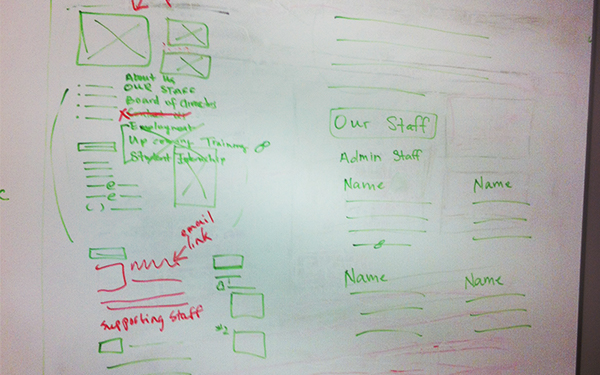 About Us
OUR STAFF
Board of directors
Employment
Up coming Training
Student Internship
e
e
email
link
supporting staff
#2
Our Staff
Admin Staff
Name Name
Name Name